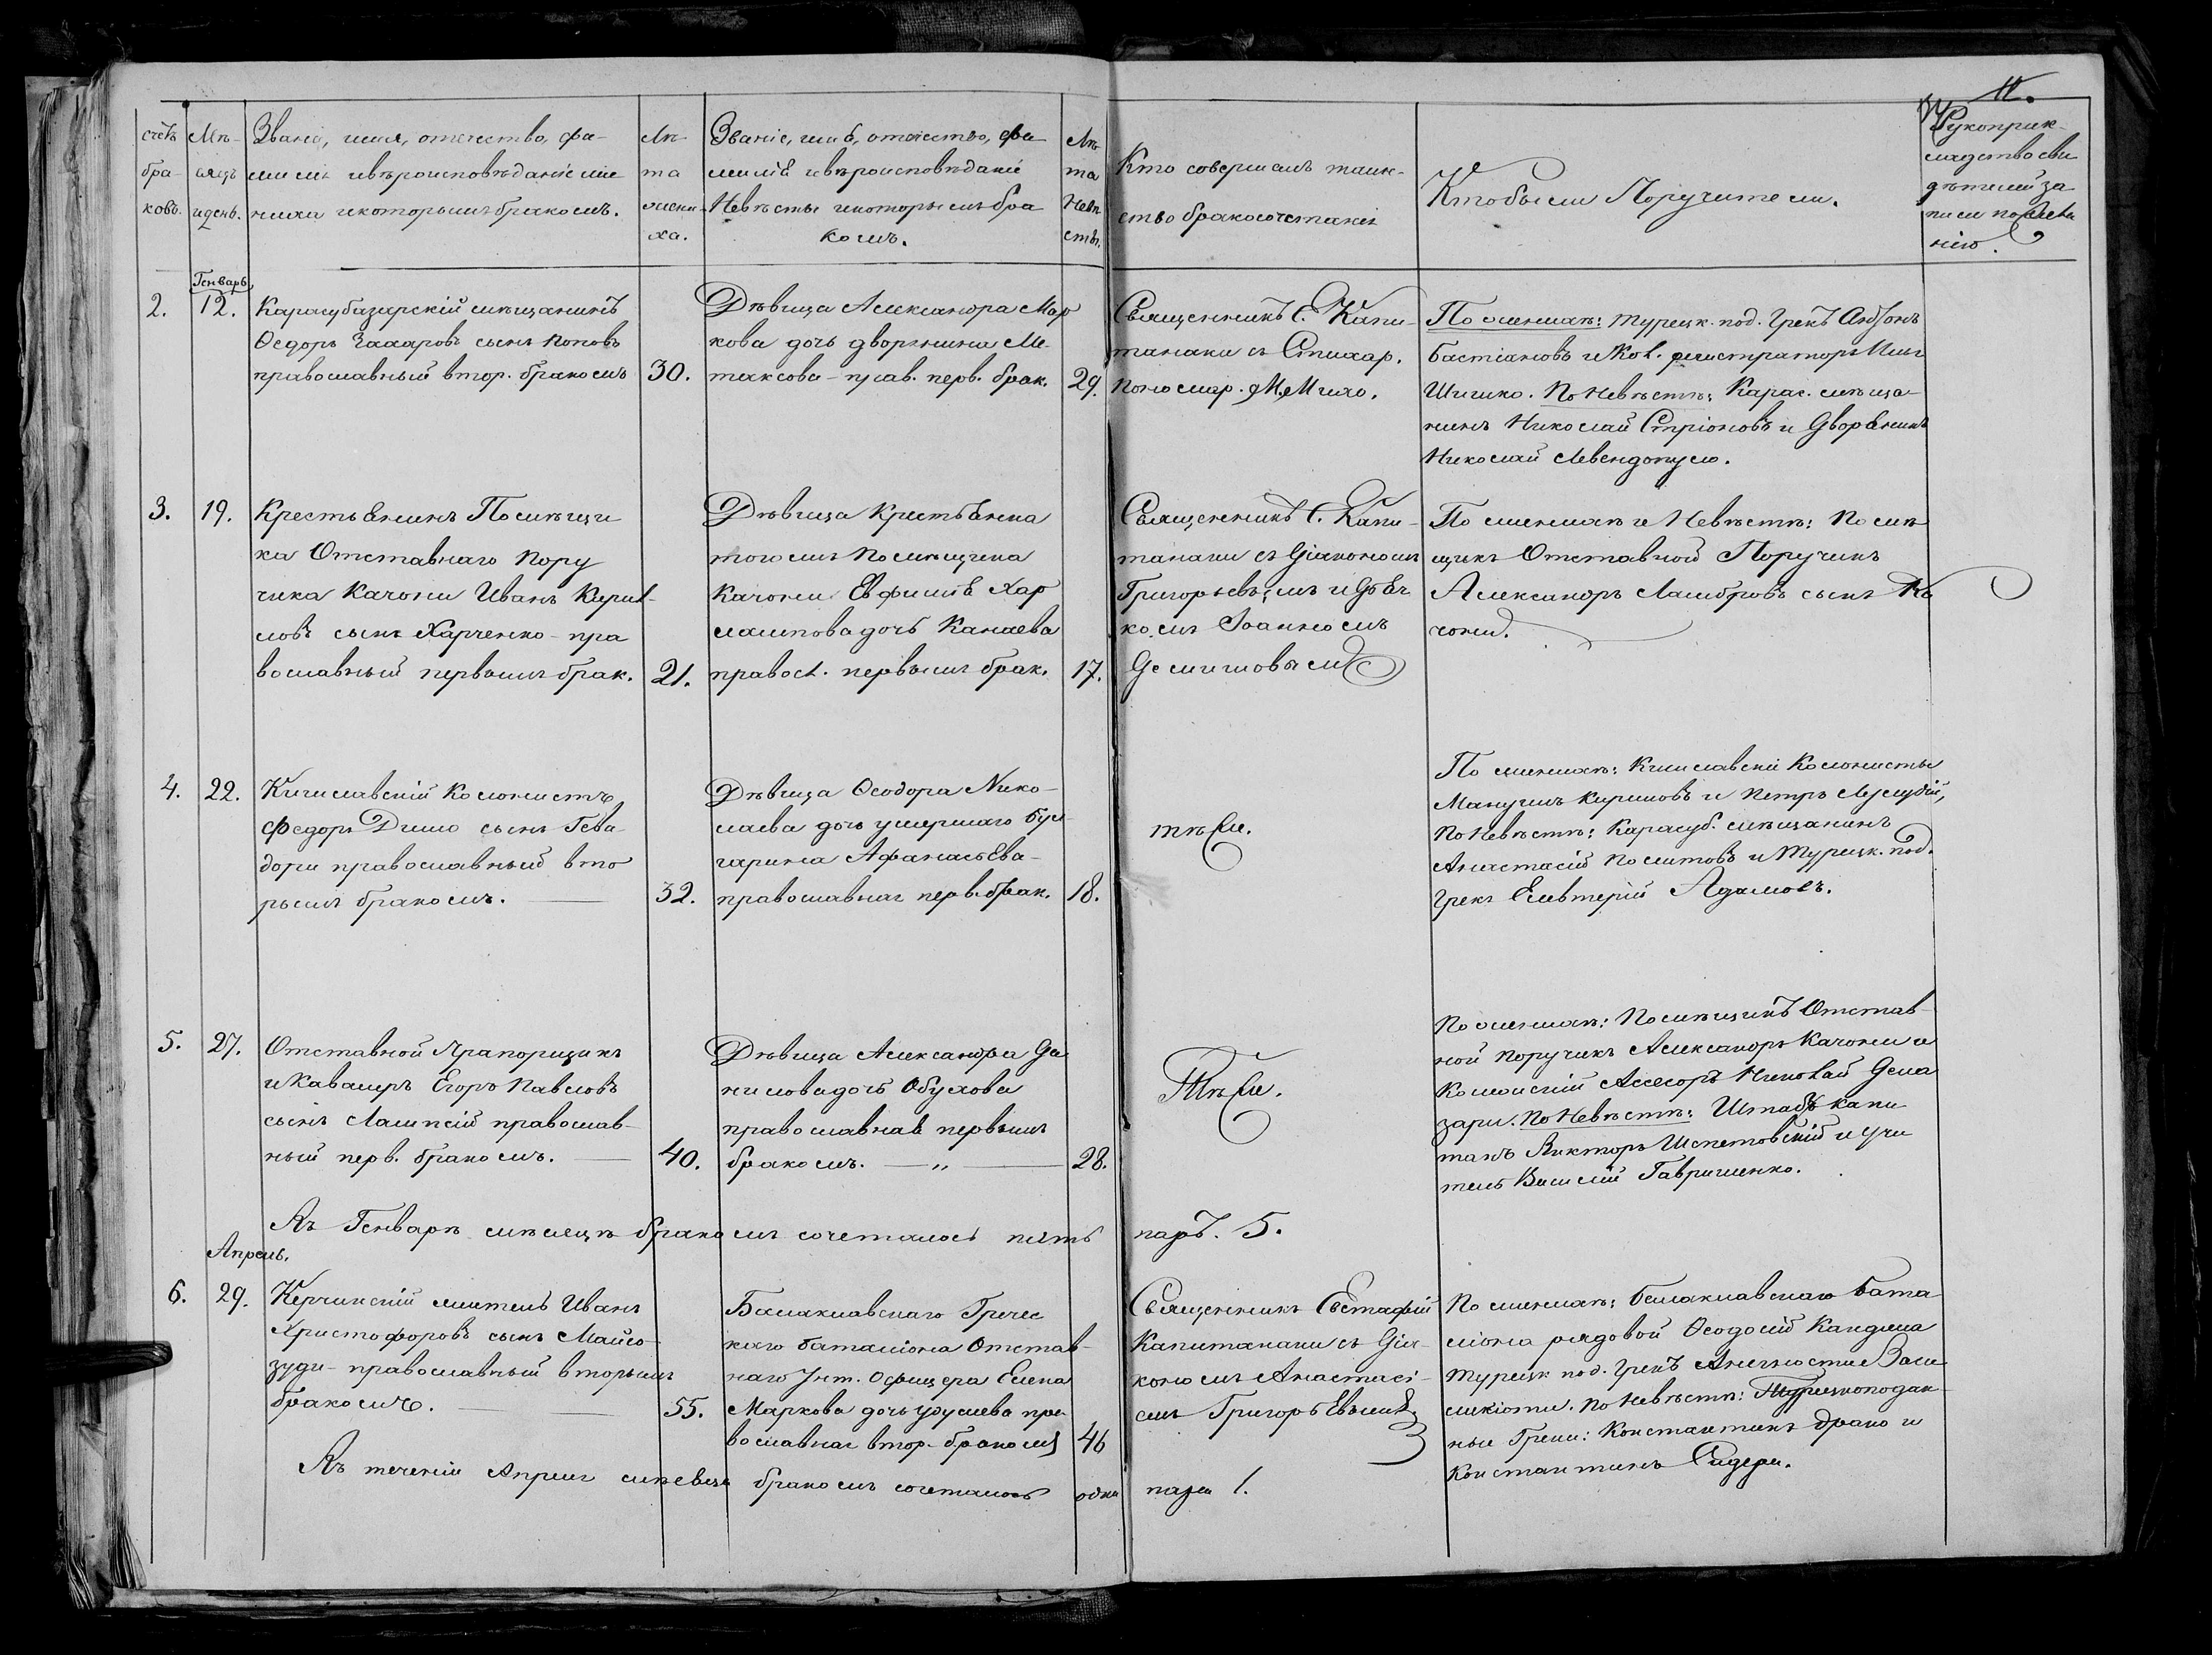 11.
счетъ бра- ковъ.
Мѣ- сяцъ и день.
Званіе, имя, отечество, фа-
милія и вѣроисповѣданіе же-
ниха и которымъ бракомъ.
Лѣ- та жени- ха.
Званіе, имя, отечество, фа-
милія и вѣроисповѣданіе
Невѣсты и которымъ бра
комъ.
Лѣ та Невѣ сты.
Кто совершалъ таин-
ство бракосочетанія
Кто были Поручители.
Рукоприк-
ладство сви
дѣтелей за
писи по жела
нію.
Генварь
2.
12.
Карасубазарскій мѣщанинъ
Ѳедоръ Захаровъ сынъ Поповъ
православный втор. бракомъ
30.
Дѣвица Александра Мар
кова дочь дворянина Ме-
таксова - прав. перв. брак.
29.
Священникъ Е. Капи-
танаки съ Стихар.
Пономар. М. Михо.
По женихѣ: турецк. под. Грекъ Антонъ
Бастіановъ и Кол. регистраторъ Илья
Шишко. По Невѣстѣ: Карас. мѣща-
нинъ Николай Стріоновъ и Дворянинъ
Николай Левендопуло.
3.
19.
Крестьянинъ Помѣщи
ка Отставнаго Пору
чика Качони Иванъ Кирил-
ловъ сынъ Харченко - пра
вославный первымъ брак.
21.
Дѣвица Крестьянка
того жъ Помѣщика
Качони Евфимія Хар
лампова дочь Канаева
правосл. первымъ брак.
17.
Священникъ Е. Капи-
танаки съ Діакономъ
Григорьевымъ и Дьяч
комъ Іоанномъ
Демишовымъ
По женихѣ и Невѣстѣ: Помѣ
щикъ Отставной Поручикъ
Александръ Ламбровъ сынъ Ка
чони.
4.
22.
Кишлавскій Колонистъ
Федоръ Димо сынъ Гева
дори православный вто
рымъ бракомъ.
32.
Дѣвица Ѳеодора Нико-
лаева дочь умершаго Бул
гарина Афанасьева -
православная перв. брак.
18.
тѣ же.
По женихѣ: Кишлавскіе Колонисты
Мануилъ Кириловъ и Петръ
По Невѣстѣ: Карасуб. мѣщанинъ
Анастасій Политовъ и Турецк. под.
Грекъ Елевтерій Адамовъ.
5.
27.
Отставной Прапорщикъ
и Кавалеръ Егоръ Павловъ
сынъ Лампсій православ-
ный перв. бракомъ.
40.
Дѣвица Александра Да
нилова дочь Обухова
православная первымъ
бракомъ. — „ —
28.
Тѣ же.
По женихѣ: Помѣщикъ Отстав
ной Поручикъ Александръ Качони и
Колежскій Асесоръ Николай Дела
зари. По Невѣстѣ: Штабъ капи
танъ Викторъ Шепетовскій и учи
тель Василій Гавришенко.
Въ Генварѣ мѣсяцѣ бракомъ сочеталось пять паръ. 5.
Апрель.
6.
29.
Керчинскій житель Иванъ
Христофоровъ сынъ Майо-
зуди - православный вторымъ
бракомъ.
55.
Балаклавскаго Гречес
каго баталіона Отстав-
наго Унт. Офицера Елена
Маркова дочь Удулиева пра
вославная втор. бракомъ
46
Священникъ Евстафій
Капитанаки съ Діа-
кономъ Анастасі-
емъ Григорьевымъ.
По женихѣ: Балаклавскаго Бата
ліона рядовой Ѳеодосій Кандила
Турецк. под. Грекъ Анагности Васи
ликіоти. По Невѣстѣ: Турецкоподан
ные Греки: Константинъ Драко и
Константинъ Сидери.
Въ теченіи Апреля мѣсяца бракомъ сочеталось одна пара 1.